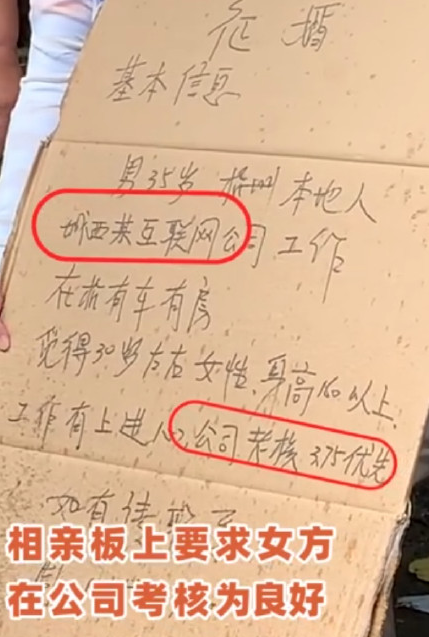 征婚
基本信息
男35岁 杭州本地人
城西某互联网公司工作
在杭有车有房
觅得30岁左右女性.身高160以上.
工作有上进心,公司考核3.75优先
如有
相亲板上要求女方
在公司考核为良好